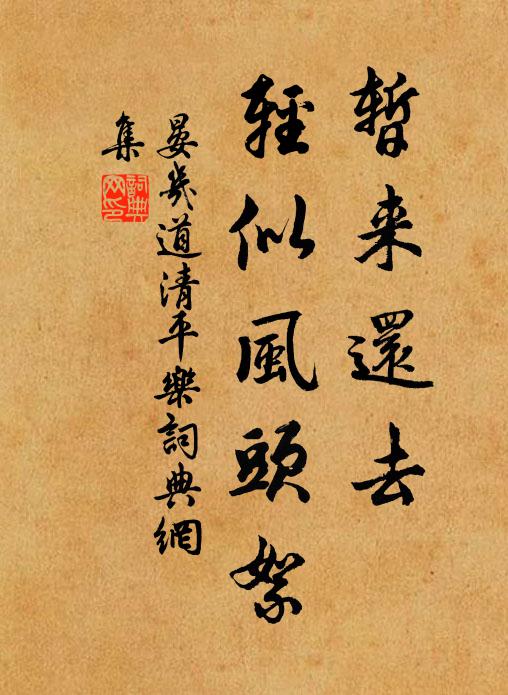 暫来還去
輕似風頭絮
晏幾道清平樂詞典網
集
詞典
网印